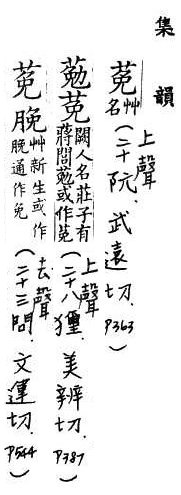 集韻
莬艸名(上聲二十阮.武遠切.P363)
葂莬闕人名莊子有蔣閭葂或作莬(上聲二十八獮.美辨切.P387)
莬脕艸新生或作脕通作免(去聲二十三問.文運切.P544)